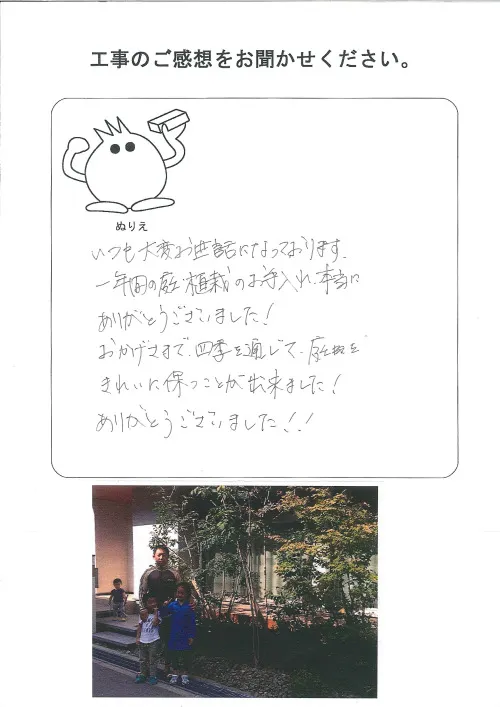 工事のご感想をお聞かせください。
ぬりえ
いつも大変お世話になっております。
一年間の庭、植栽のお手入れ、本当に
ありがとうございました!
おかげさまで、四季を通じて、庭を
きれいに保つことが出来ました!
ありがとうございました!!